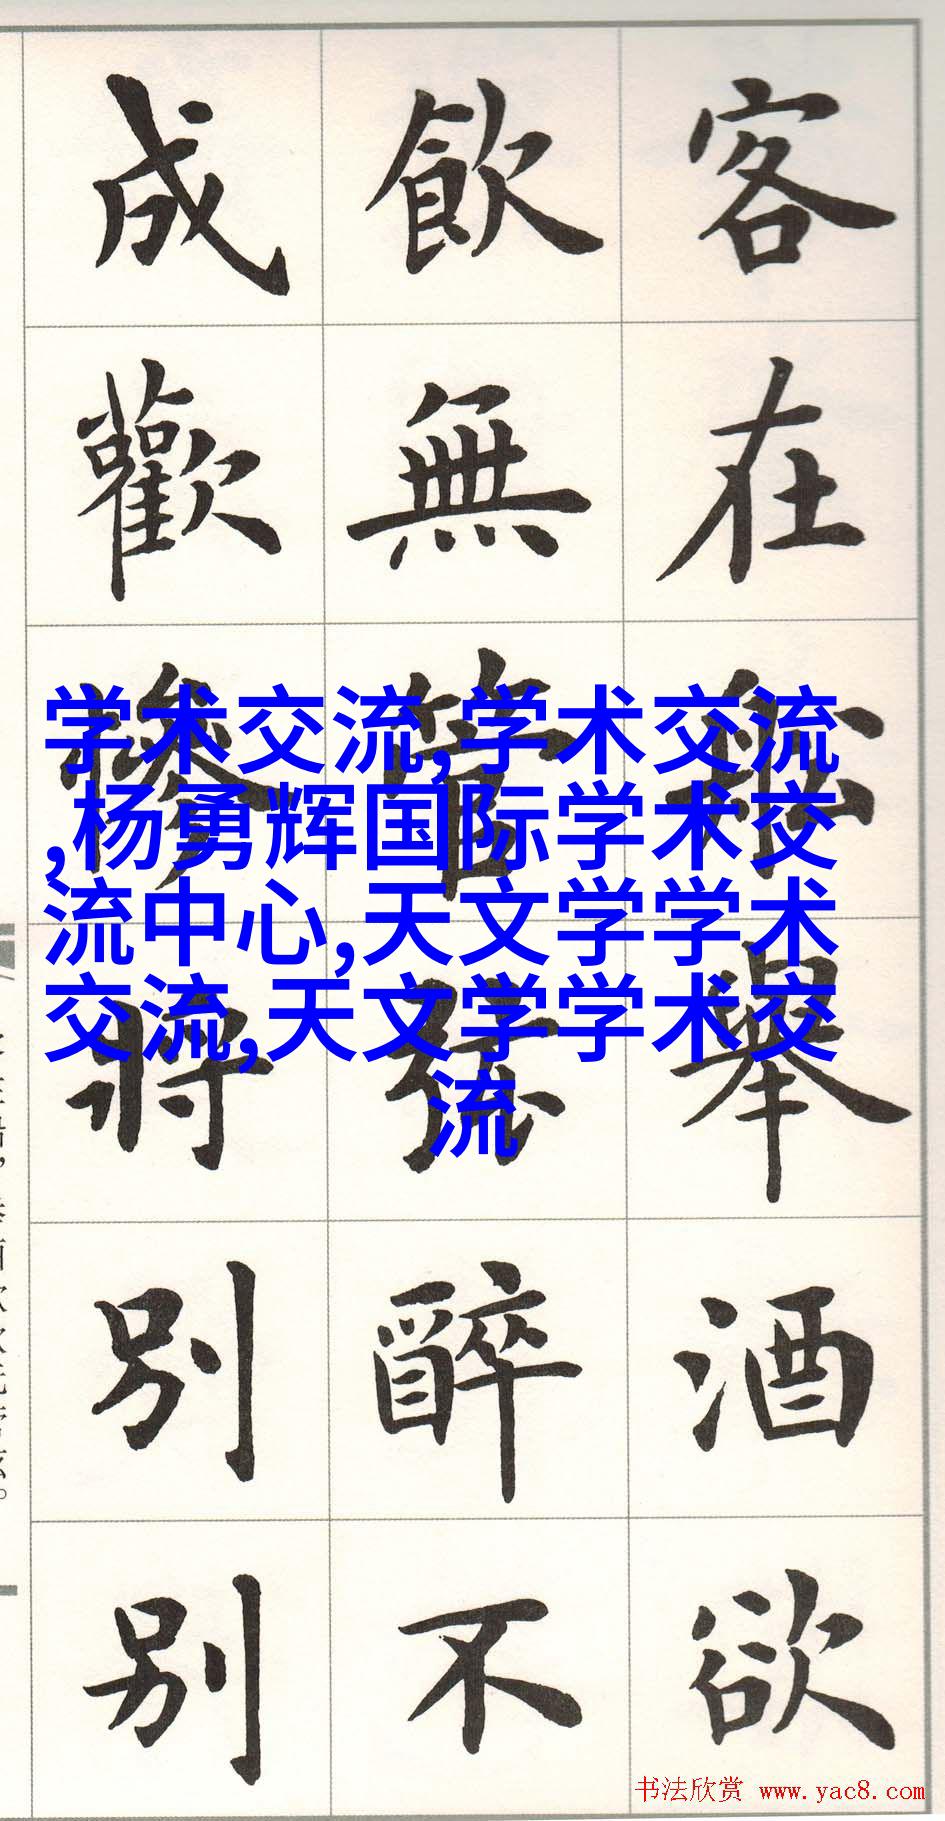 客在舩舉酒欲
飲無管弦醉不
成歡慘將別別
学术交流,学术交流
,杨勇辉国际学术交
流中心,天文学学术
交流,天文学学术交
流
书法欣赏 www.yac8.com